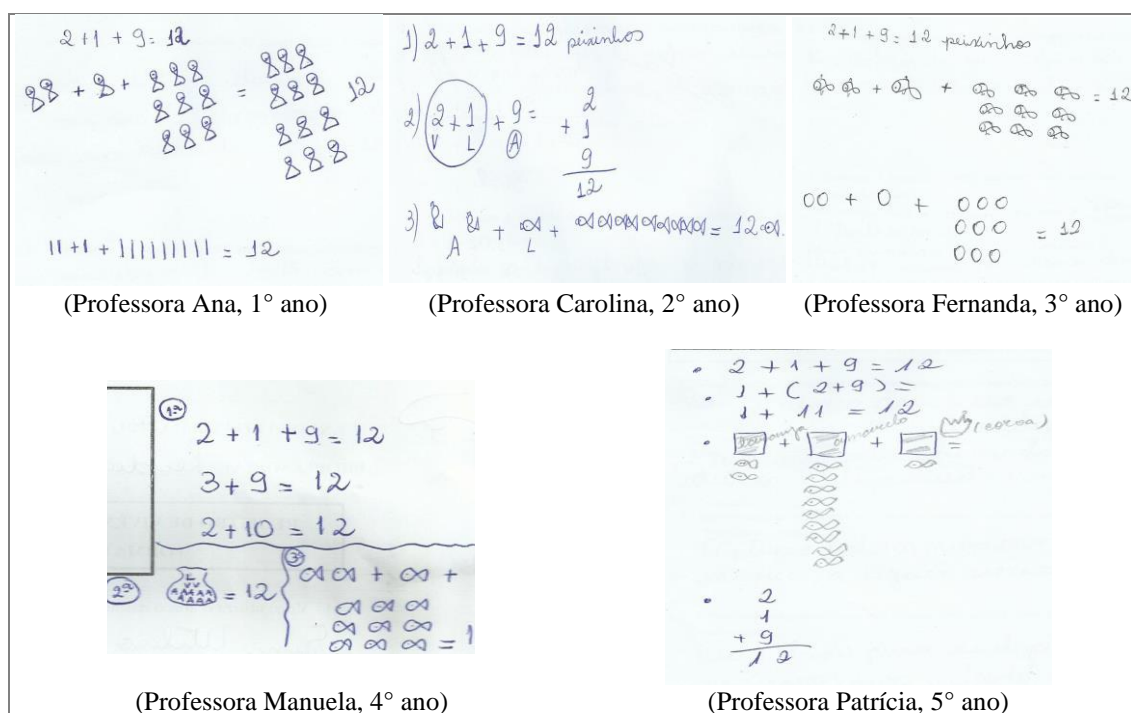 2+1+9=12
+ + = 12
11+1+111111111 = 12
(Professora Ana, 1° ano)
1) 2+1+9=12 peixinhos
2) 2+1+9=
V L A
2
+ 1
9
12
3) + + = 12
A L
(Professora Carolina, 2° ano)
2+1+9=12 peixinhos
+ + = 12
00 + 0 + 000
000 = 12
000
(Professora Fernanda, 3° ano)
1ª
2+1+9=12
3+9=12
2+10=12
2ª
L
VV
AAAAA
AAAA
= 12
3ª
+ +
= 1
(Professora Manuela, 4° ano)
• 2+1+9=12
• 1+(2+9)=
1+11=12
• laranja + amarelo + (coroa) =
• 2
1
+ 9
12
(Professora Patrícia, 5° ano)